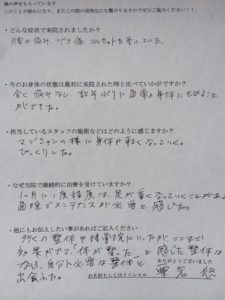 様の声をもらっています
このことが励みになり、またこの院の活性化にも繋がりますのでぜひご協力ください!!
・どんな症状で来院されましたか?
腰の痛み、コルセットを巻いていた。
・今のお身体の状態は最初に来院された時と比べていかがですか?
全く痛みなし、数年ぶりに通常の身体にもどること
ができた。
・担当しているスタッフの施術などはどのように感じますか?
マジシャンの様に身体が軽くなっていく。
びっくりした。
・なぜ当院で継続的に治療を受けていますか?
1ヶ月に1度程度は、足が重くなっていくことがある
ので メンテナンスが必要と感じた。
・他にもお伝えしたい事があればご記入ください
多くの整体や接骨院にいったが、ここまで
効果がでて、「体が整った」と感じた整体は
ない。自分に必要な整体と
ありがとうございました
出会えた。
お名前もしくはイニシャル